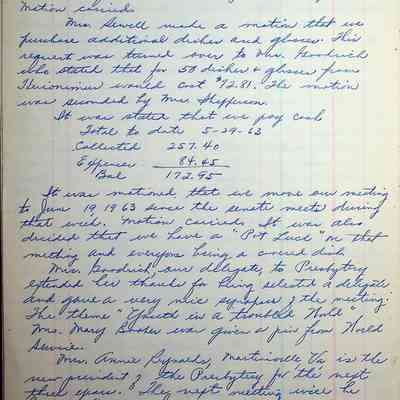 motion carried.
Mrs. Sewell made a motion that we
purchase additional dishes and glasses. This
request was turned over to Mrs. Goodrich
who stated that for 50 dishes & glasses from
would cost $72.81. The motion
was seconded by Mrs. Shefferson.
It was stated that we pay cash
Total to date 5-29-63
Collected 257.40
Expenses 84.45
Bal 172.95
It was motioned that we move our meeting
to June 19, 1963 since the senate meets during
that week. Motion carried. It was also
decided that we have a "Pot Luck" on that
meeting and everyone bring a covered dish.
Mrs. Goodrich, our delegate, to Presbytery
extended her thanks for being selected a delegate
and gave a very nice synopses of the meeting.
The theme "Youth in a troubled World"
Mrs. Mary Booker was given a pin from World
Service.
Mrs. Annie Reynolds, Martinsville Va is the
new president of the Presbytery for the next
three years. They next meeting will be